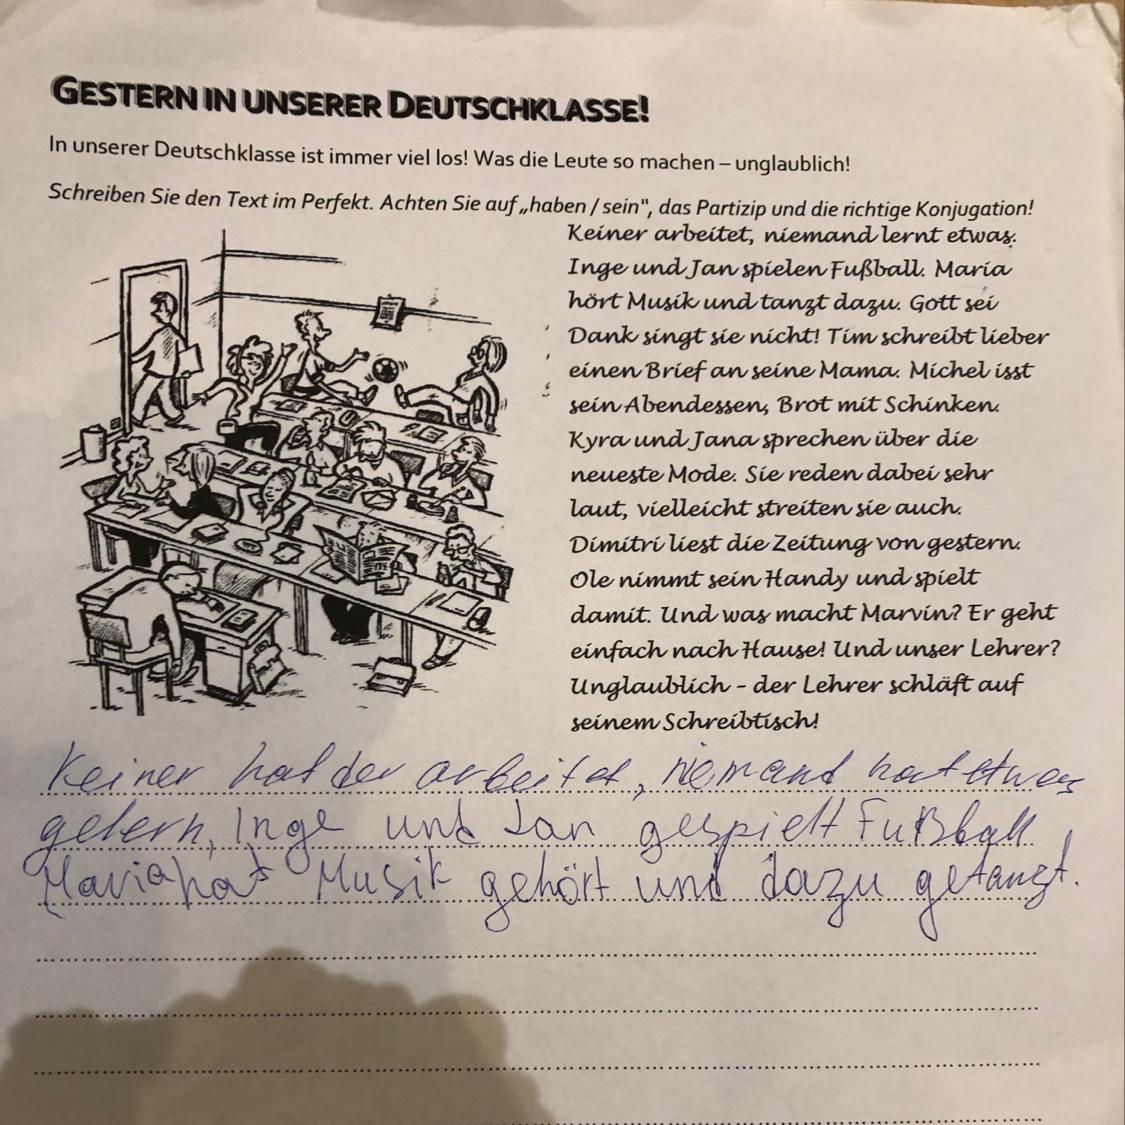 GESTERN IN UNSERER DEUTSCHKLASSE!
In unserer Deutschklasse ist immer viel los! Was die Leute so machen – unglaublich!
Schreiben Sie den Text im Perfekt. Achten Sie auf „haben / sein", das Partizip und die richtige Konjugation!
Keiner arbeitet, niemand lernt etwas.
Inge und Jan spielen Fußball. Maria
hört Musik und tanzt dazu. Gott sei
Dank singt sie nicht! Tim schreibt lieber
einen Brief an seine Mama. Michel isst
sein Abendessen, Brot mit Schinken.
Kyra und Jana sprechen über die
neueste Mode. Sie reden dabei sehr
laut, vielleicht streiten sie auch.
Dimitri liest die Zeitung von gestern.
Ole nimmt sein Handy und spielt
damit. Und was macht Marvin? Er geht
einfach nach Hause! Und unser Lehrer?
Unglaublich - der Lehrer schläft auf
seinem Schreibtisch!
Keiner hat der arbeitet, niemand hat etwas
gelern, Inge und Jan gespielt Fußball
Maria hat Musik gehört und dazu getanzt.